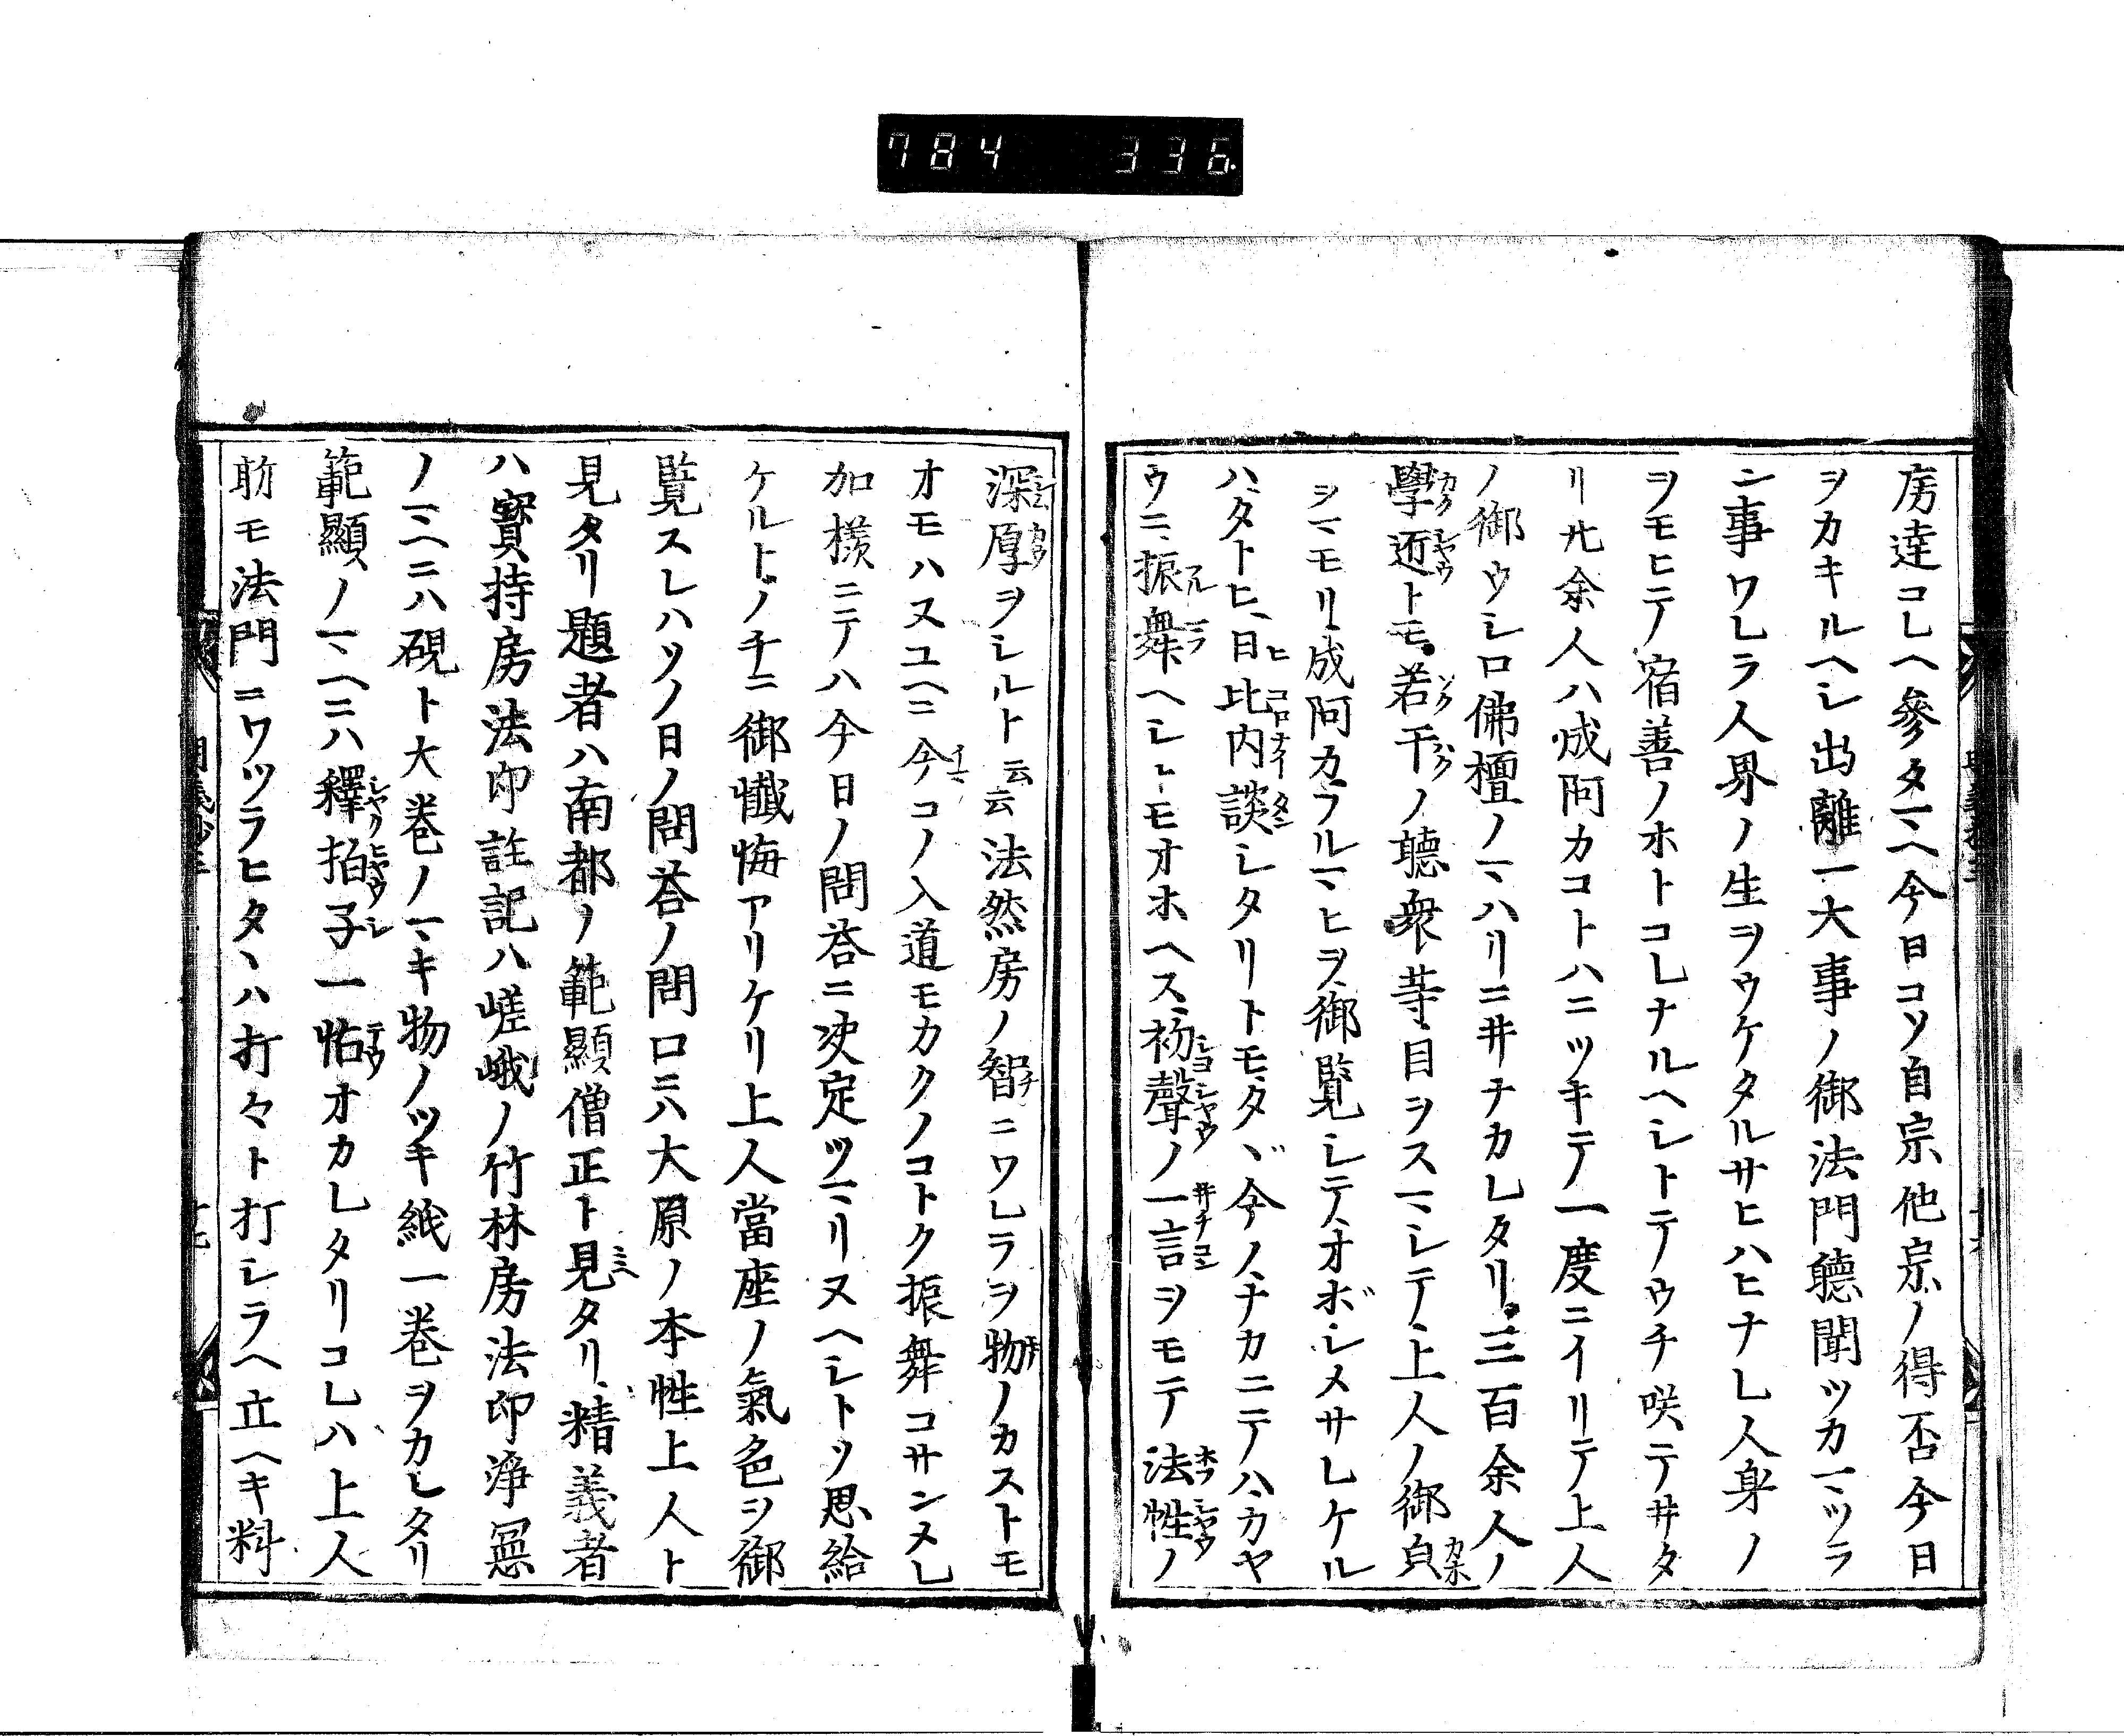 784 336
房達コレヘ參タマヘ今日コソ自宗他宗ノ得否今日
ヲカキルヘシ出離一大事ノ御法門聽聞ツカマツラ
ン事ワレラ人界ノ生ヲウケタルサヒハヒナレ人身ノ
ヲモヒテノ宿善ノホトコレナルヘシトテウチ咲テ井タ
リ廿余人ハ成阿カコトハニツキテ一度ニイリテ上人
ノ御ウシロ佛檀ノマハリニ井ナカレタリ三百余人ノ
學匠トモ若干ノ聽衆等目ヲスマシテ上人ノ御皃
ヲマモリ成阿カフルマヒヲ御覽シテオボシメサレケル
ハタトヒ日比内談シタリトモタヾ今ノナカニテハカヤ
ウニ振舞ヘシトモオホヘス初聲ノ一言ヲモテ法性ノ
深厚ヲシルト云云法然房ノ智ニワレラヲ物ノカストモ
オモハヌユヘニ今コノ入道モカクノコトク振舞コサンメレ
加樣ニテハ今日ノ問荅ニ决定ツマリヌヘシトソ思給
ケルトノチニ御懺悔アリケリ上人當座ノ氣色ヲ御
覽スレハソノ日ノ問荅ノ問口ニハ大原ノ本性上人ト
見タリ題者ハ南都ノ範顯僧正ト見タリ精義者
ハ寳持房法印註記ハ嵯峨ノ竹林房法印淨
ノマヘニハ硯ト大巻ノマキ物ノツキ紙一巻ヲカレタリ
範顯ノマヘニハ釋拍子一帖オカレタリコレハ上人
前モ法門ニワツラヒタヽハ打々ト打シラヘ立ヘキ料